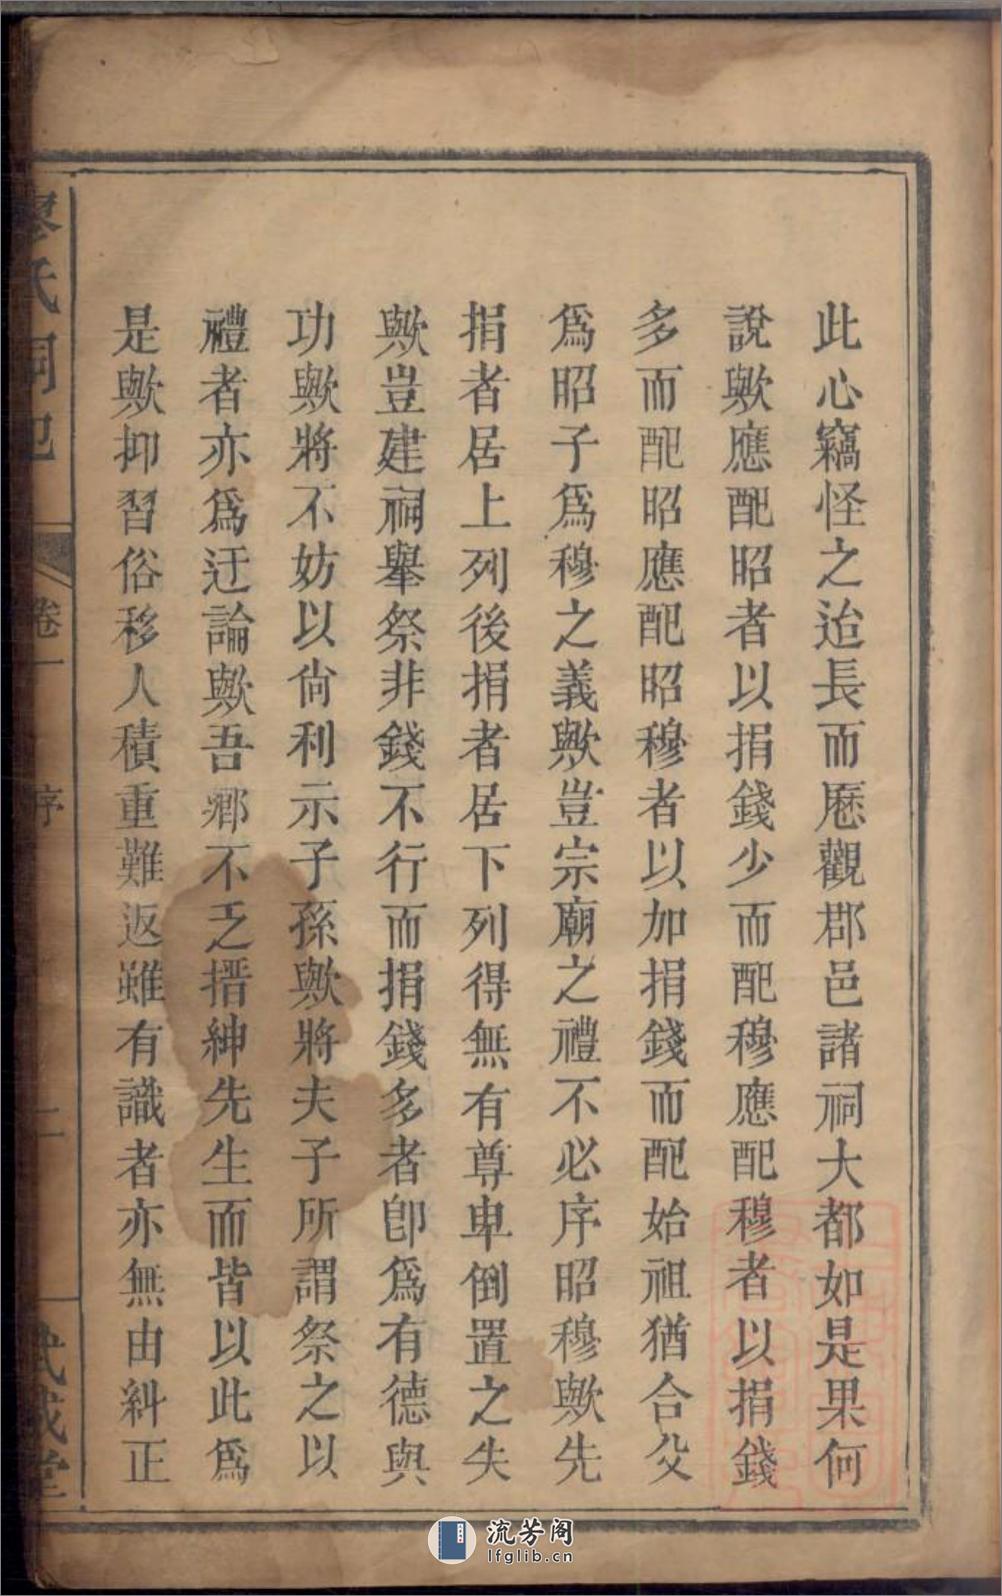 此心竊怪之迨長而歷觀郡邑諸祠大都如是果何
說歟應配昭者以捐錢少而配穆應配穆者以捐錢
多而配昭應配昭穆者以加捐錢而配始祖猶合父
爲昭子爲穆之義歟豈宗廟之禮不必序昭穆歟先
捐者居上列後捐者居下列得無有尊卑倒置之失
歟豈建祠舉祭非錢不行而捐錢多者卽爲有德與
功歟將不妨以尙利示子孫歟將夫子所謂祭之以
禮者亦爲迂論歟吾鄕不乏搢紳先生而皆以此爲
是歟抑習俗移人積重難返雖有識者亦無由糾正
廖氏祠祀 卷一 序 二 武威堂
流芳阁
lfglib.cn